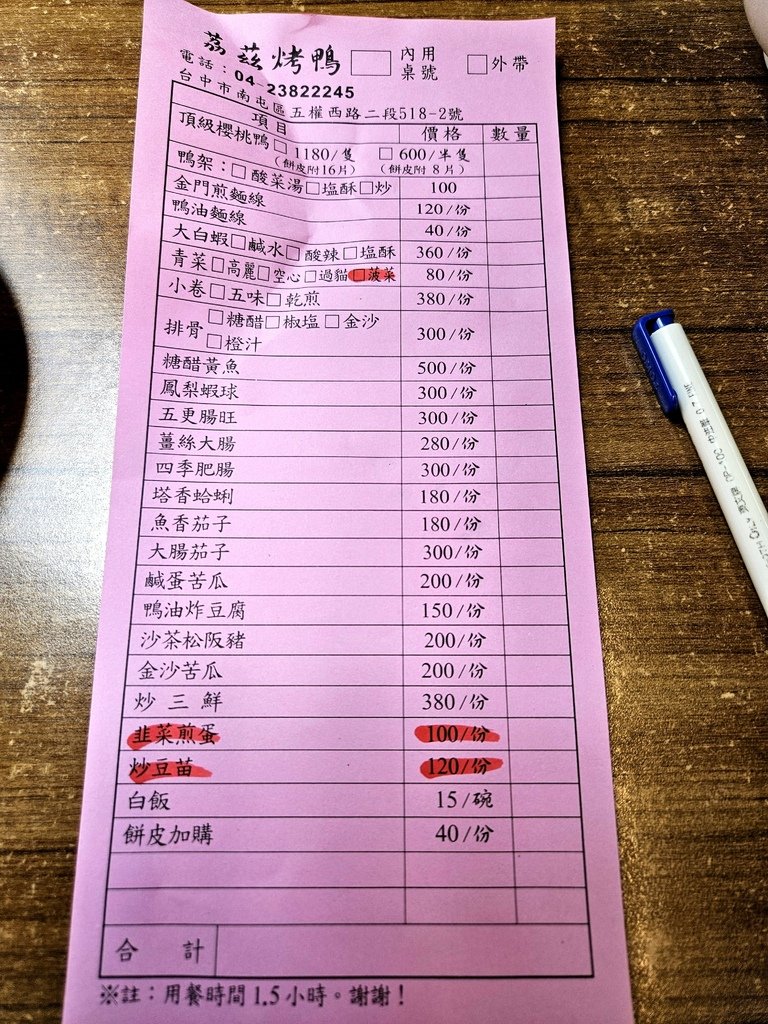 荔茲烤鴨 □ 內用桌號 □外帶
電話：04-23822245
台中市南屯區五權西路二段518-2號
項目 價格 數量
頂級櫻桃鴨 □1180/隻 □600/半隻
(餅皮附16片) (餅皮附8片)
鴨架：□酸菜湯□塩酥□炒 100
金門煎麵線 120/份
鴨油麵線 40/份
大白蝦□鹹水□酸辣□塩酥 360/份
青菜□高麗□空心□過貓□菠菜 80/份
小卷□五味□乾煎 380/份
排骨□糖醋□椒塩□金沙□橙汁 300/份
糖醋黃魚 500/份
鳳梨蝦球 300/份
五更腸旺 300/份
薑絲大腸 280/份
四季肥腸 300/份
塔香蛤蜊 180/份
魚香茄子 180/份
大腸茄子 300/份
鹹蛋苦瓜 200/份
鴨油炸豆腐 150/份
沙茶松阪豬 200/份
金沙苦瓜 200/份
炒三鮮 380/份
韭菜煎蛋 100/份
炒豆苗 120/份
白飯 15/碗
餅皮加購 40/份
合計
※註：用餐時間1.5小時。謝謝！